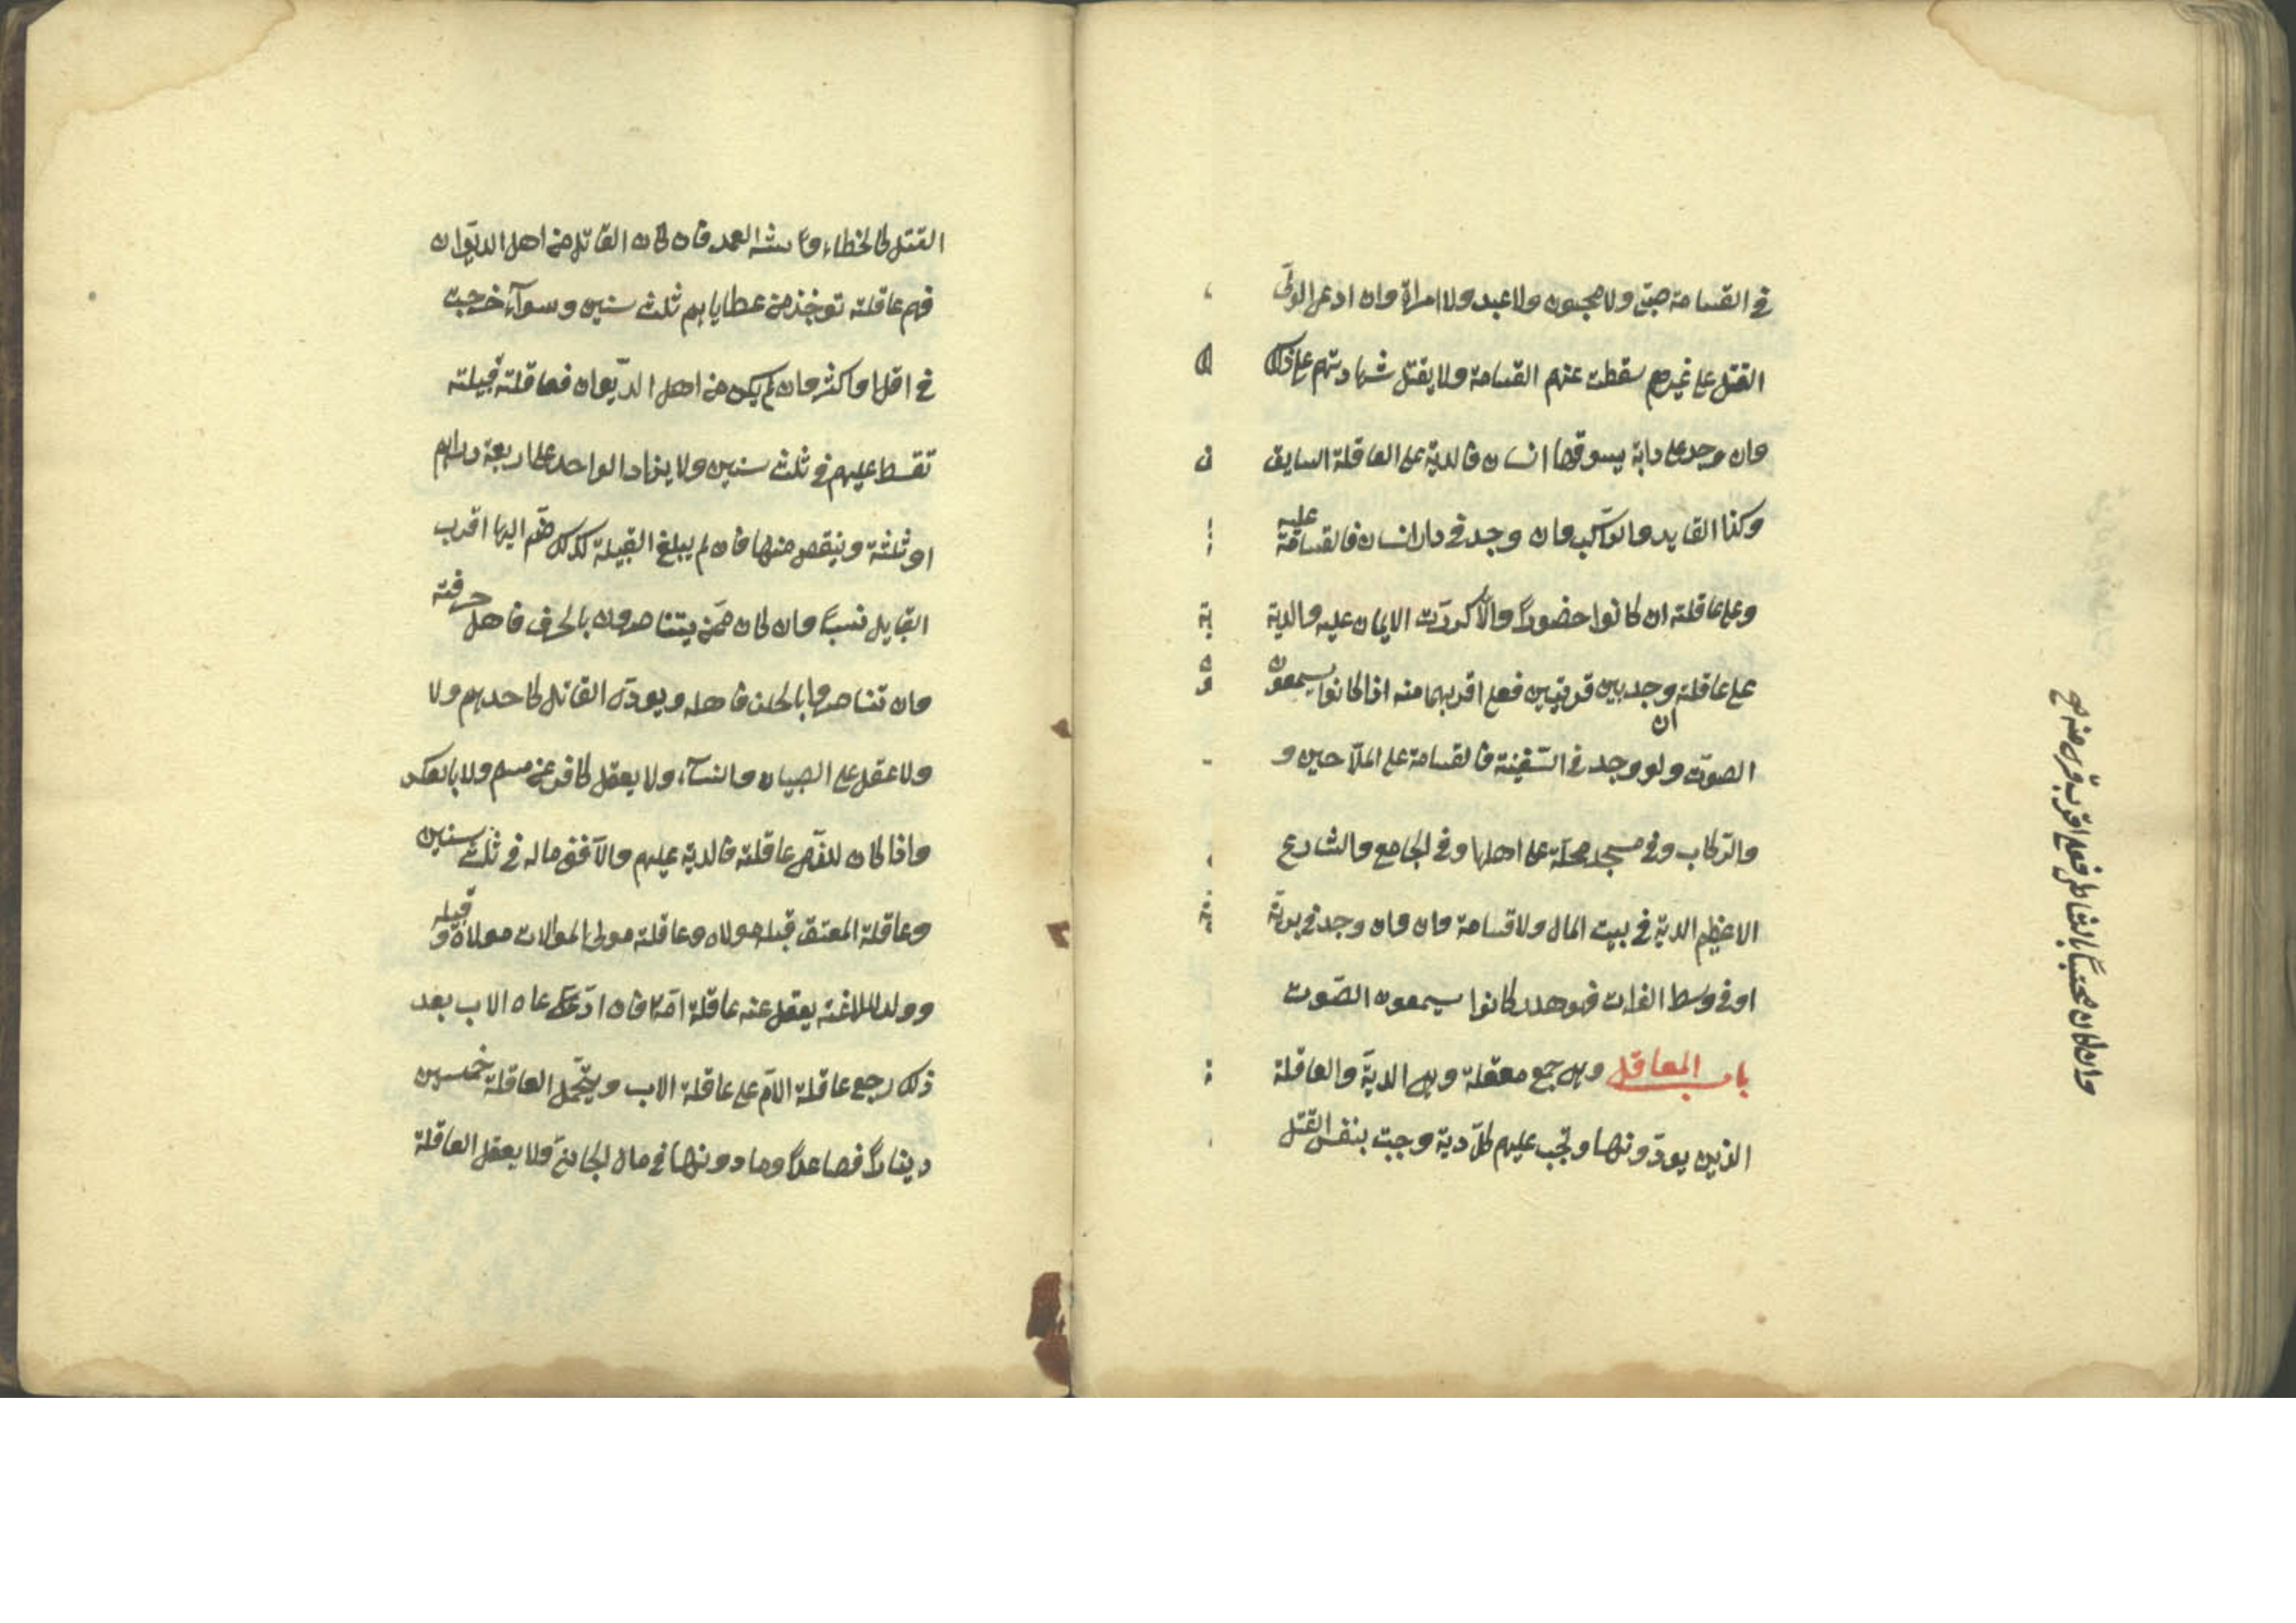 في القسامة صبي ولا مجنون ولا عبد ولا امراة وان ادعى الولى
القتل على غيرهم سقطت عنهم القسامة ولا يقتل شهادتهم على ذلك
وان وجد على دابة يسوقها انسان فالدية على العاقلة السايق
وكذا القايد والراكب وان وجد في دار انسان فالقسامة عليه
وعلى عاقلته ان كانوا حضوراً والا كررت الايمان عليه والدية
على عاقلته وان وجد بين قريتين فعلى اقربهما منه اذا كانوا يسمعون
الصوت ولو وجد في السفينة فالقسامة على الملاحين و
والركاب وفي مسجد محلة على اهلها وفي الجامع والشارع
الاعظم الدية في بيت المال ولا قسامة وان وان وجد في برية
او في وسط الفرات فهو هدر كانوا يسمعون الصوت
باب المعاقل وهي جمع معقلة وهي الدية والعاقلة
الذين يودونها وتجب عليهم كل دية وجبت بنفس القتل
وان كان محتبساً بالشاطى فعلى اقرب قرى منه صح
القتل كالخطاء و شبه العمد فان كان القاتل من اهل الديوان
فهم عاقلته توخذ من عطاياهم ثلث سنين وسوآء خرجت
في اقل او اكثر وان لم يكن من اهل الديوان فعاقلته قبيلته
تقسط عليهم في ثلث سنين ولا يزاد الواحد على اربعة دراهم
او ثلثة وينقص منها فان لم يبلغ القبيلة كذلك ضم اليها اقرب
القبايل نسباً وان كان ممن يتناصرون بالحرف فاهل حرفته
وان تناصروا بالحلف فاهله ويودى القاتل كاحدهم ولا
ولا عقل على الصبيان والنسآء ولا يعقل كافر عن مسلم ولا بالعكس
واذا كان للذمى عاقلة فالدية عليهم والا ففى ماله في ثلث سنين
وعاقلة المعتق قبيلة مولاه وعاقلة مولى الموالات مولاه وقبيلته
وولد الملاعنة يعقل عنه عاقلة امه فان ادعاه الاب بعد
ذلك رجع عاقلة الام على عاقلة الاب ويتحمل العاقلة خمسين
ديناراً فصاعداً وما دونها في مال الجانى ولا يعقل العاقلة